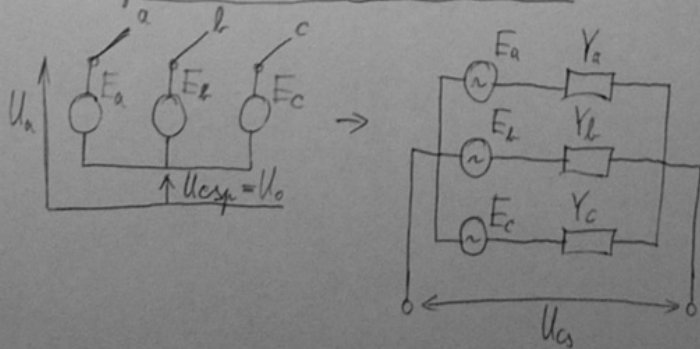 a b c
Ea Eb Ec
Ua
Ucsp = U0
Ea Ya
Eb Yb
Ec Yc
Ucs